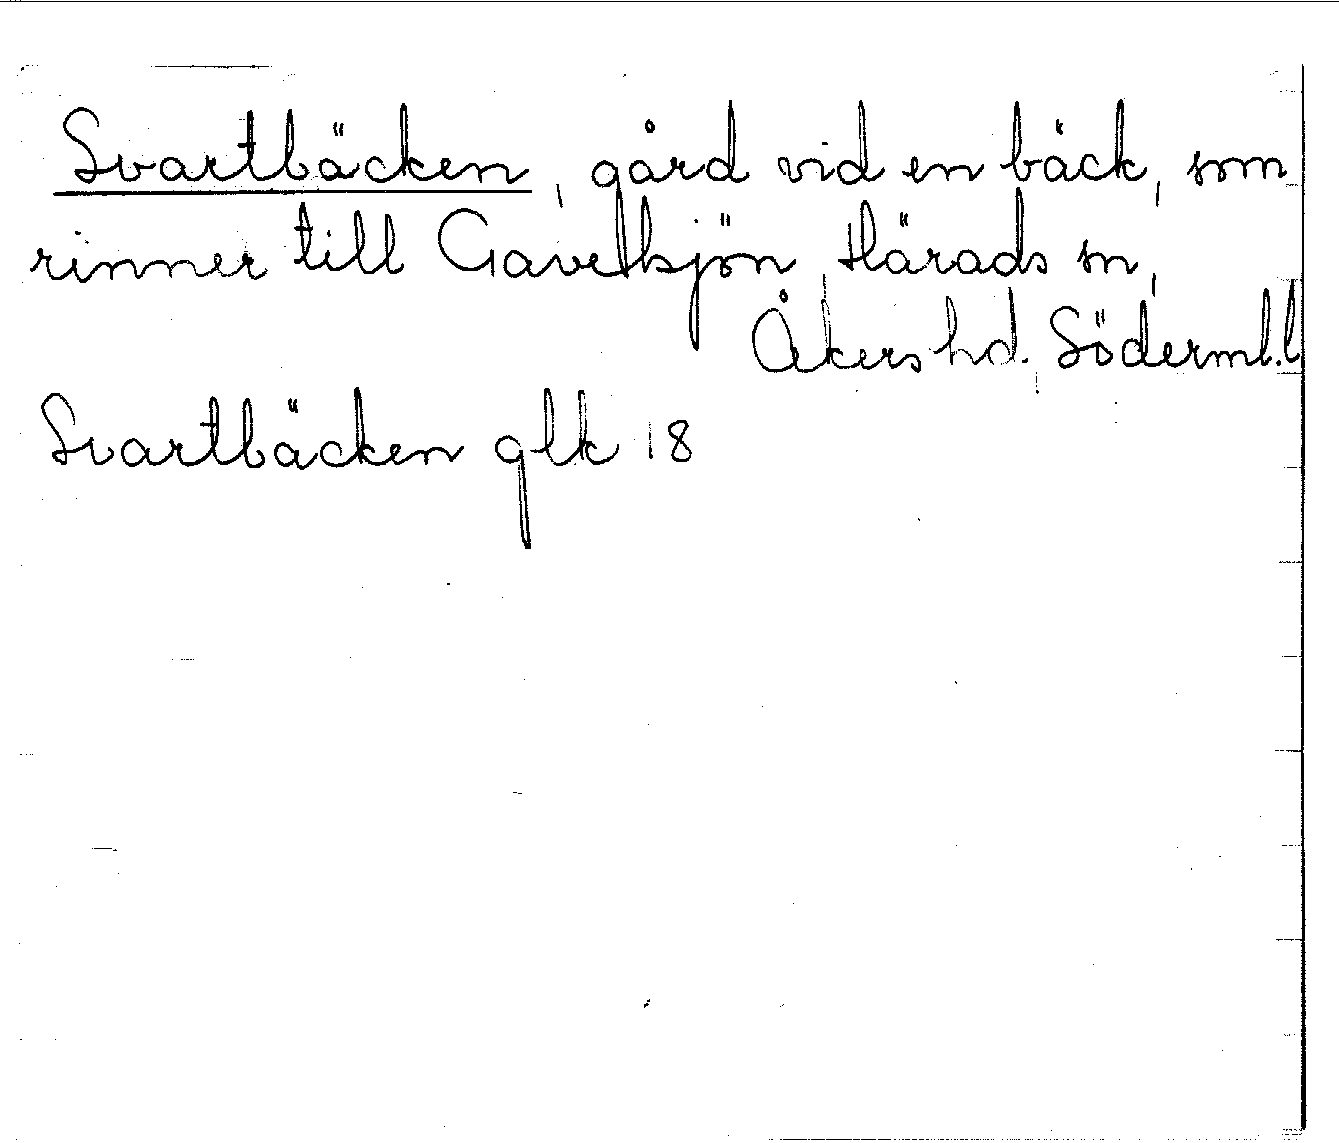 Svartbäcken, gård vid en bäck, som
rinner till Gaveltkjön, Härads sn,
Åkers hd. Söderml.l
Svartbäcken glk 18